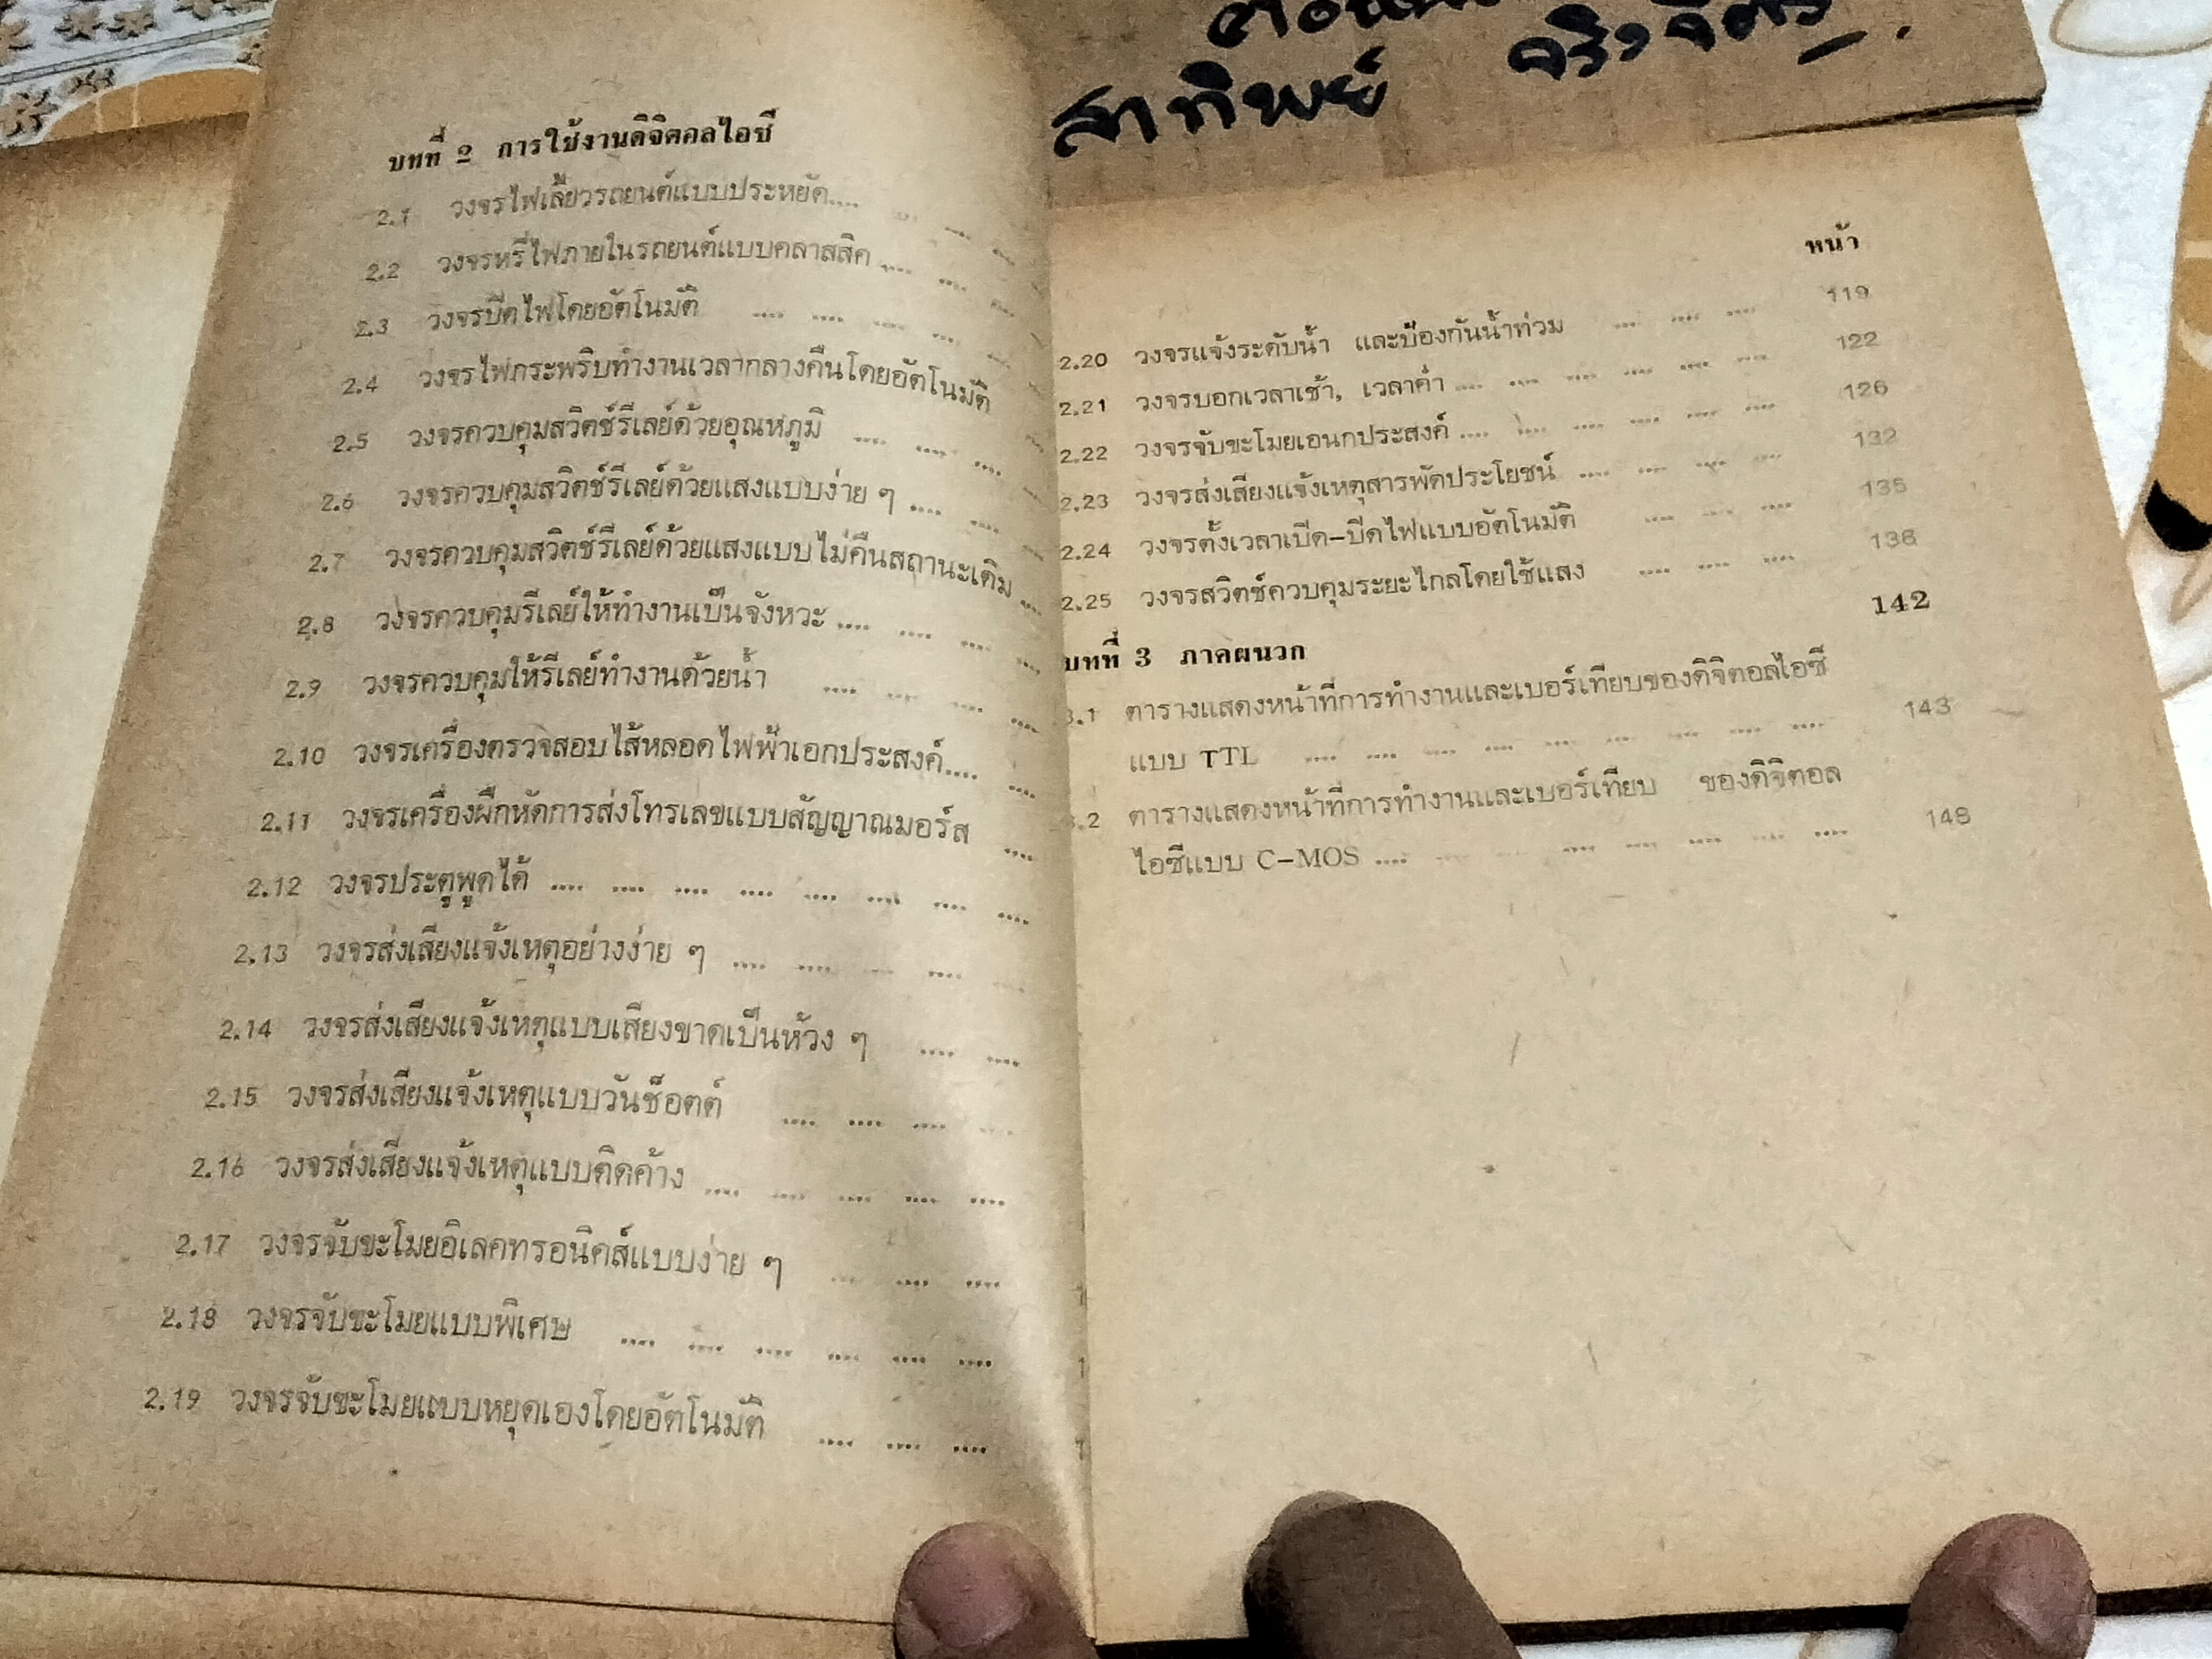 สาทิพย์
บทที่ 2 การใช้งานดิจิตอลไอซี
2.1 วงจรไฟเลี้ยวรถยนต์แบบประหยัด....
2.2 วงจรหรี่ไฟภายในรถยนต์แบบคลาสสิค .... .... ....
2.3 วงจรปิดไฟโดยอัตโนมัติ .... .... .... .... ....
2.4 วงจรไฟกระพริบทำงานเวลากลางคืนโดยอัตโนมัติ
2.5 วงจรควบคุมสวิตช์รีเลย์ด้วยอุณหภูมิ .... .... ....
2.6 วงจรควบคุมสวิตช์รีเลย์ด้วยแสงแบบง่าย ๆ .... ....
2.7 วงจรควบคุมสวิตช์รีเลย์ด้วยแสงแบบไม่คืนสถานะเดิม ....
2.8 วงจรควบคุมรีเลย์ให้ทำงานเป็นจังหวะ .... .... .... ....
2.9 วงจรควบคุมให้รีเลย์ทำงานด้วยน้ำ .... .... .... ....
2.10 วงจรเครื่องตรวจสอบไส้หลอดไฟฟ้าเอกประสงค์.... ....
2.11 วงจรเครื่องฝึกหัดการส่งโทรเลขแบบสัญญาณมอร์ส ....
2.12 วงจรประตูพูดได้ .... .... .... .... .... .... .... ....
2.13 วงจรส่งเสียงแจ้งเหตุอย่างง่าย ๆ .... .... .... .... ....
2.14 วงจรส่งเสียงแจ้งเหตุแบบเสียงขาดเป็นห้วง ๆ .... ....
2.15 วงจรส่งเสียงแจ้งเหตุแบบวันช็อตต์ .... .... .... ....
2.16 วงจรส่งเสียงแจ้งเหตุแบบติดค้าง .... .... .... .... ....
2.17 วงจรจับขะโมยอิเลคทรอนิคส์แบบง่าย ๆ .... .... ....
2.18 วงจรจับขะโมยแบบพิเศษ .... .... .... .... .... ....
2.19 วงจรจับขะโมยแบบหยุดเองโดยอัตโนมัติ .... .... ....
หน้า
2.20 วงจรแจ้งระดับน้ำ และป้องกันน้ำท่วม .... .... .... 119
2.21 วงจรบอกเวลาเช้า, เวลาค่ำ .... .... .... .... .... .... 122
2.22 วงจรจับขะโมยเอนกประสงค์ .... .... .... .... .... .... 126
2.23 วงจรส่งเสียงแจ้งเหตุสารพัดประโยชน์ .... .... .... .... 132
2.24 วงจรตั้งเวลาเปิด-ปิดไฟแบบอัตโนมัติ .... .... .... 135
2.25 วงจรสวิตช์ควบคุมระยะไกลโดยใช้แสง .... .... .... 138
บทที่ 3 ภาคผนวก 142
3.1 ตารางแสดงหน้าที่การทำงานและเบอร์เทียบของดิจิตอลไอซี
แบบ TTL .... .... .... .... .... .... .... .... .... 143
3.2 ตารางแสดงหน้าที่การทำงานและเบอร์เทียบ ของดิจิตอล
ไอซีแบบ C-MOS .... .... .... .... .... .... .... .... 148